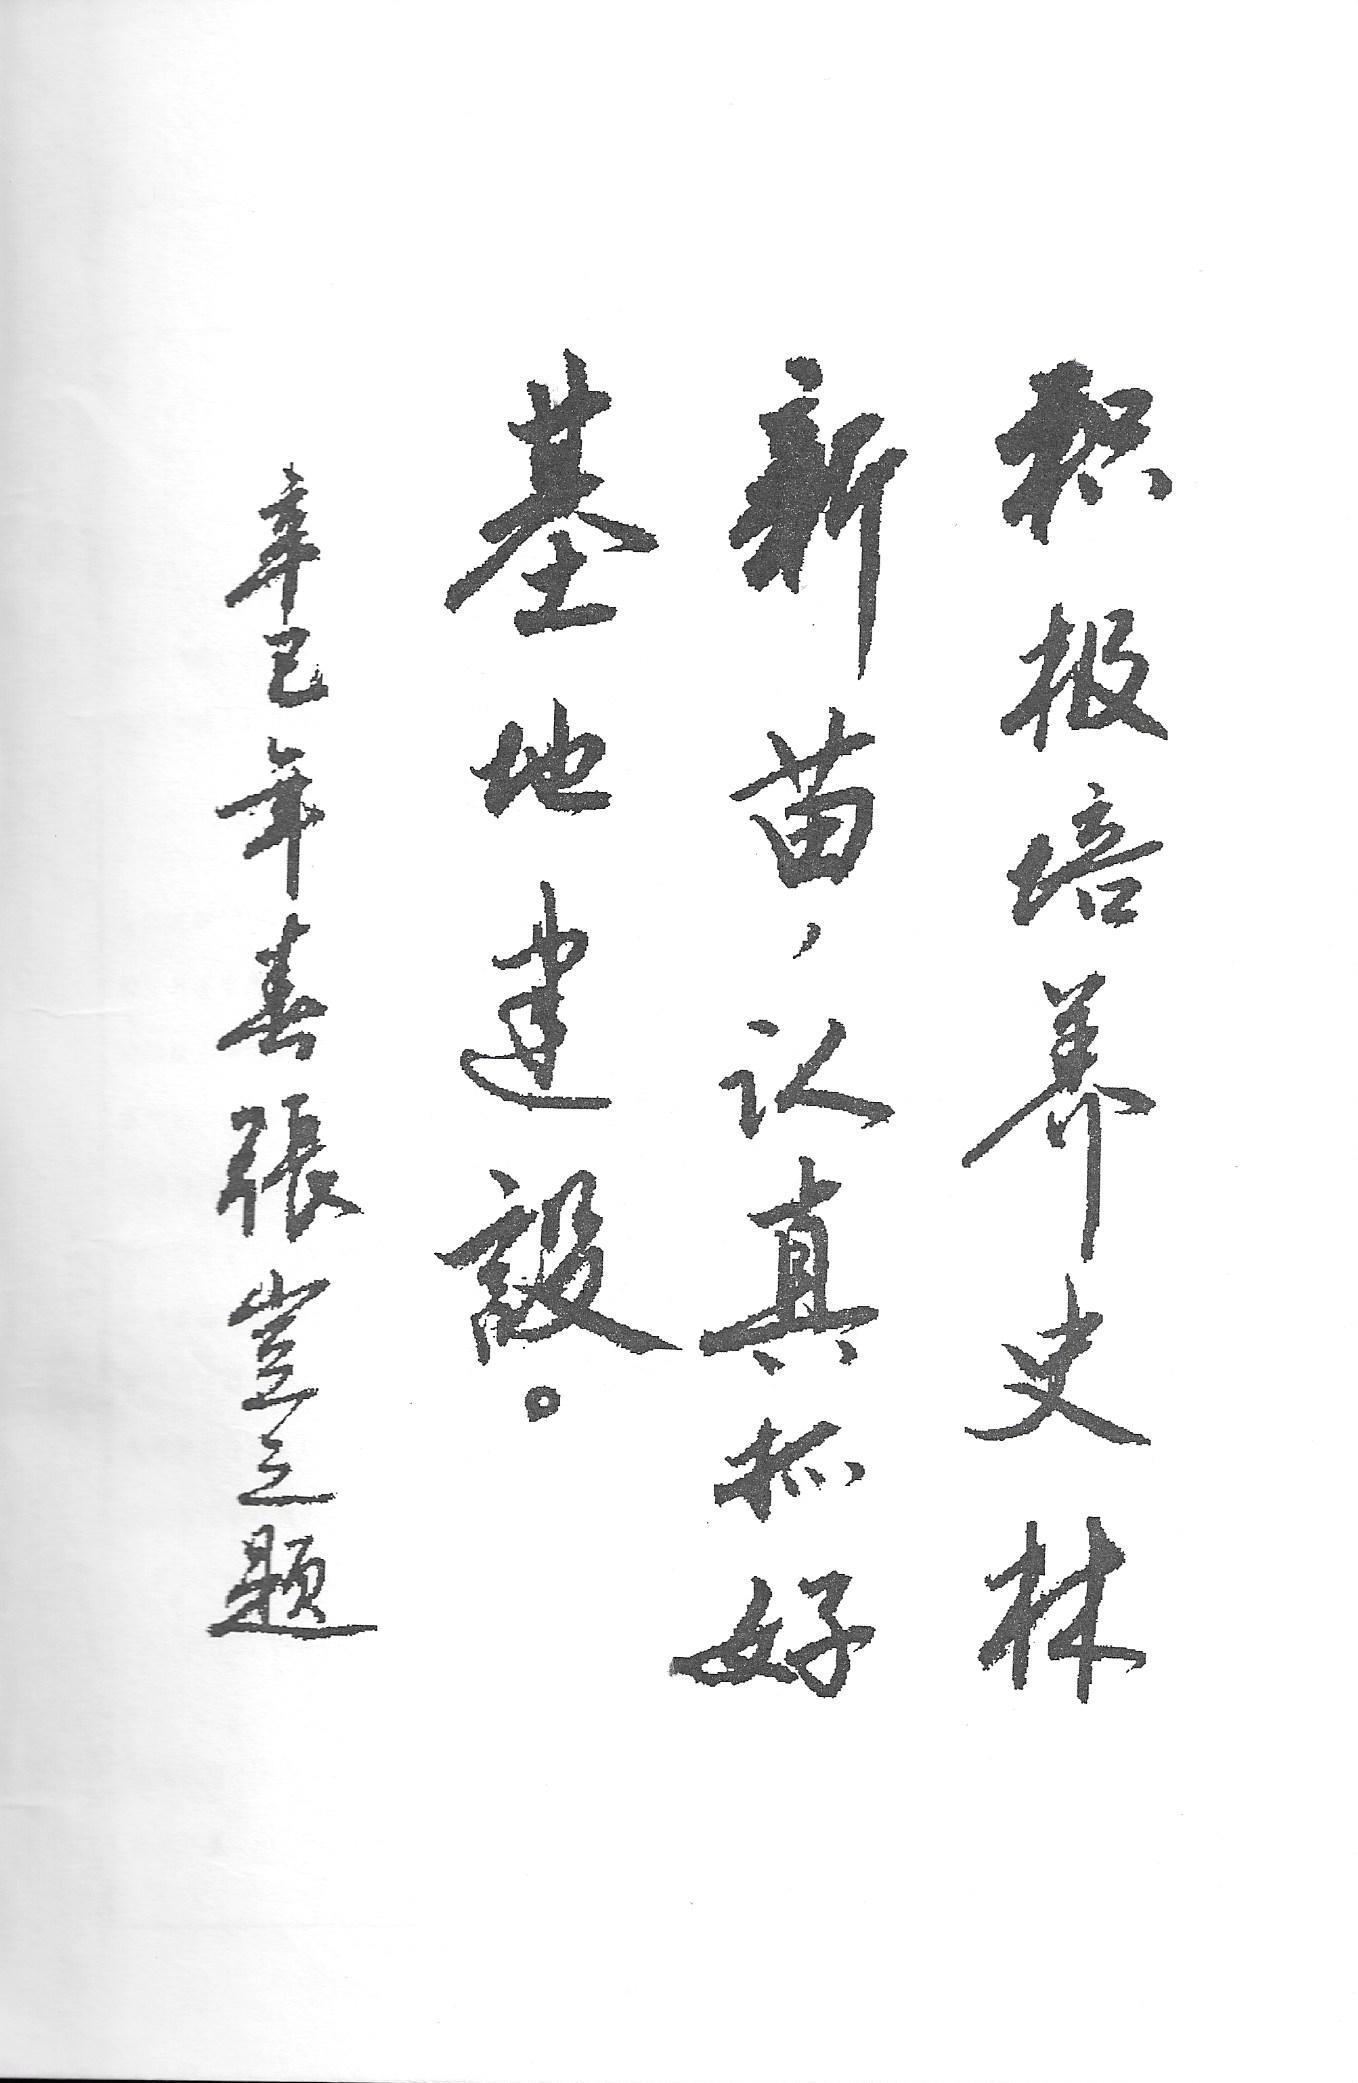 积极培养史林
新苗，认真抓好
基地建設。
辛巳年春張豈之题